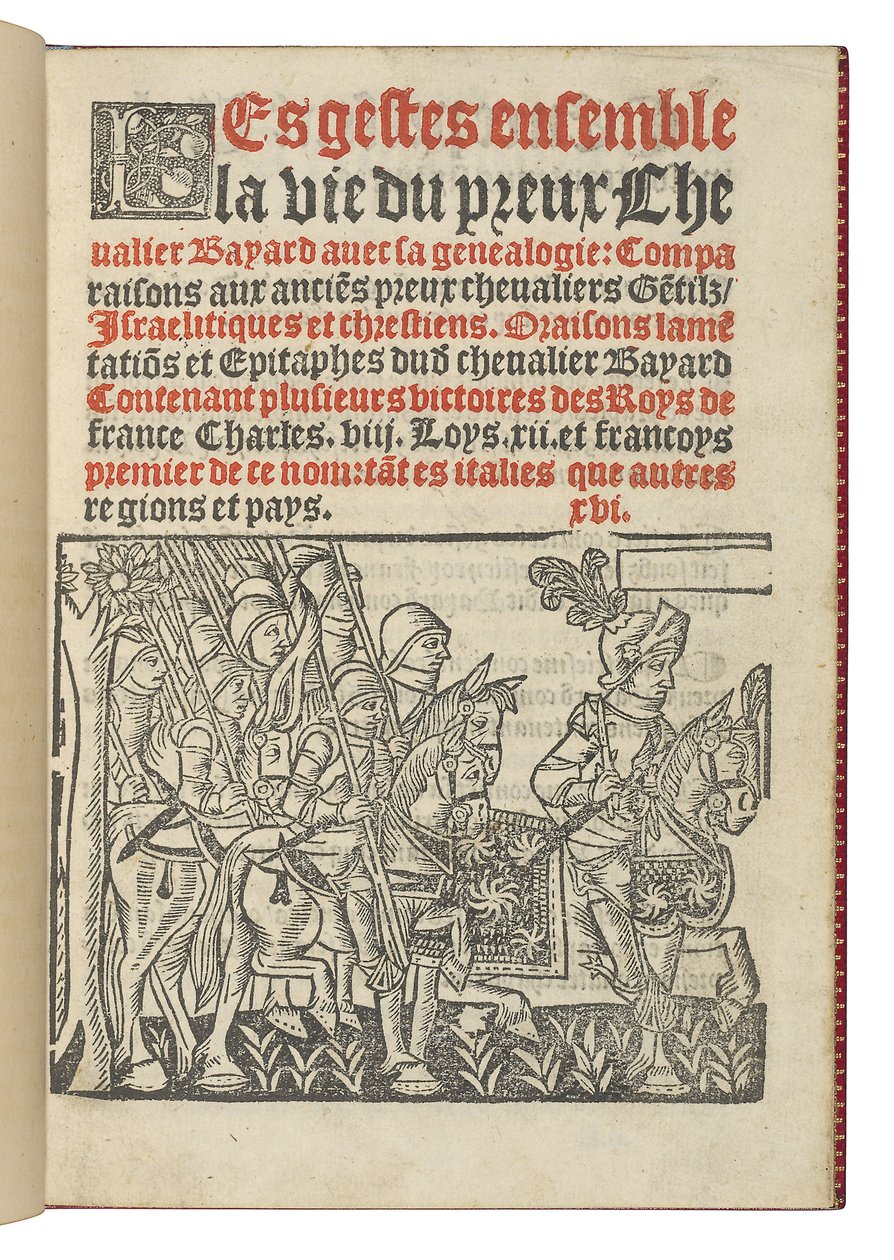 LEs gestes ensemble
la vie du preux Che
ualier Bayard auec sa genealogie: Compa
raisons aux anciẽs preux cheualiers Gẽtilz/
Israelitiques et chrestiens. Oraisons lamẽ
tatiõs et Epitaphes dud̉ cheualier Bayard
Contenant plusieurs victoires des Roys de
france Charles. viij. Loys.xii.et francoys
premier de ce nom:tãt es italies que autres
regions et pays. xvi.